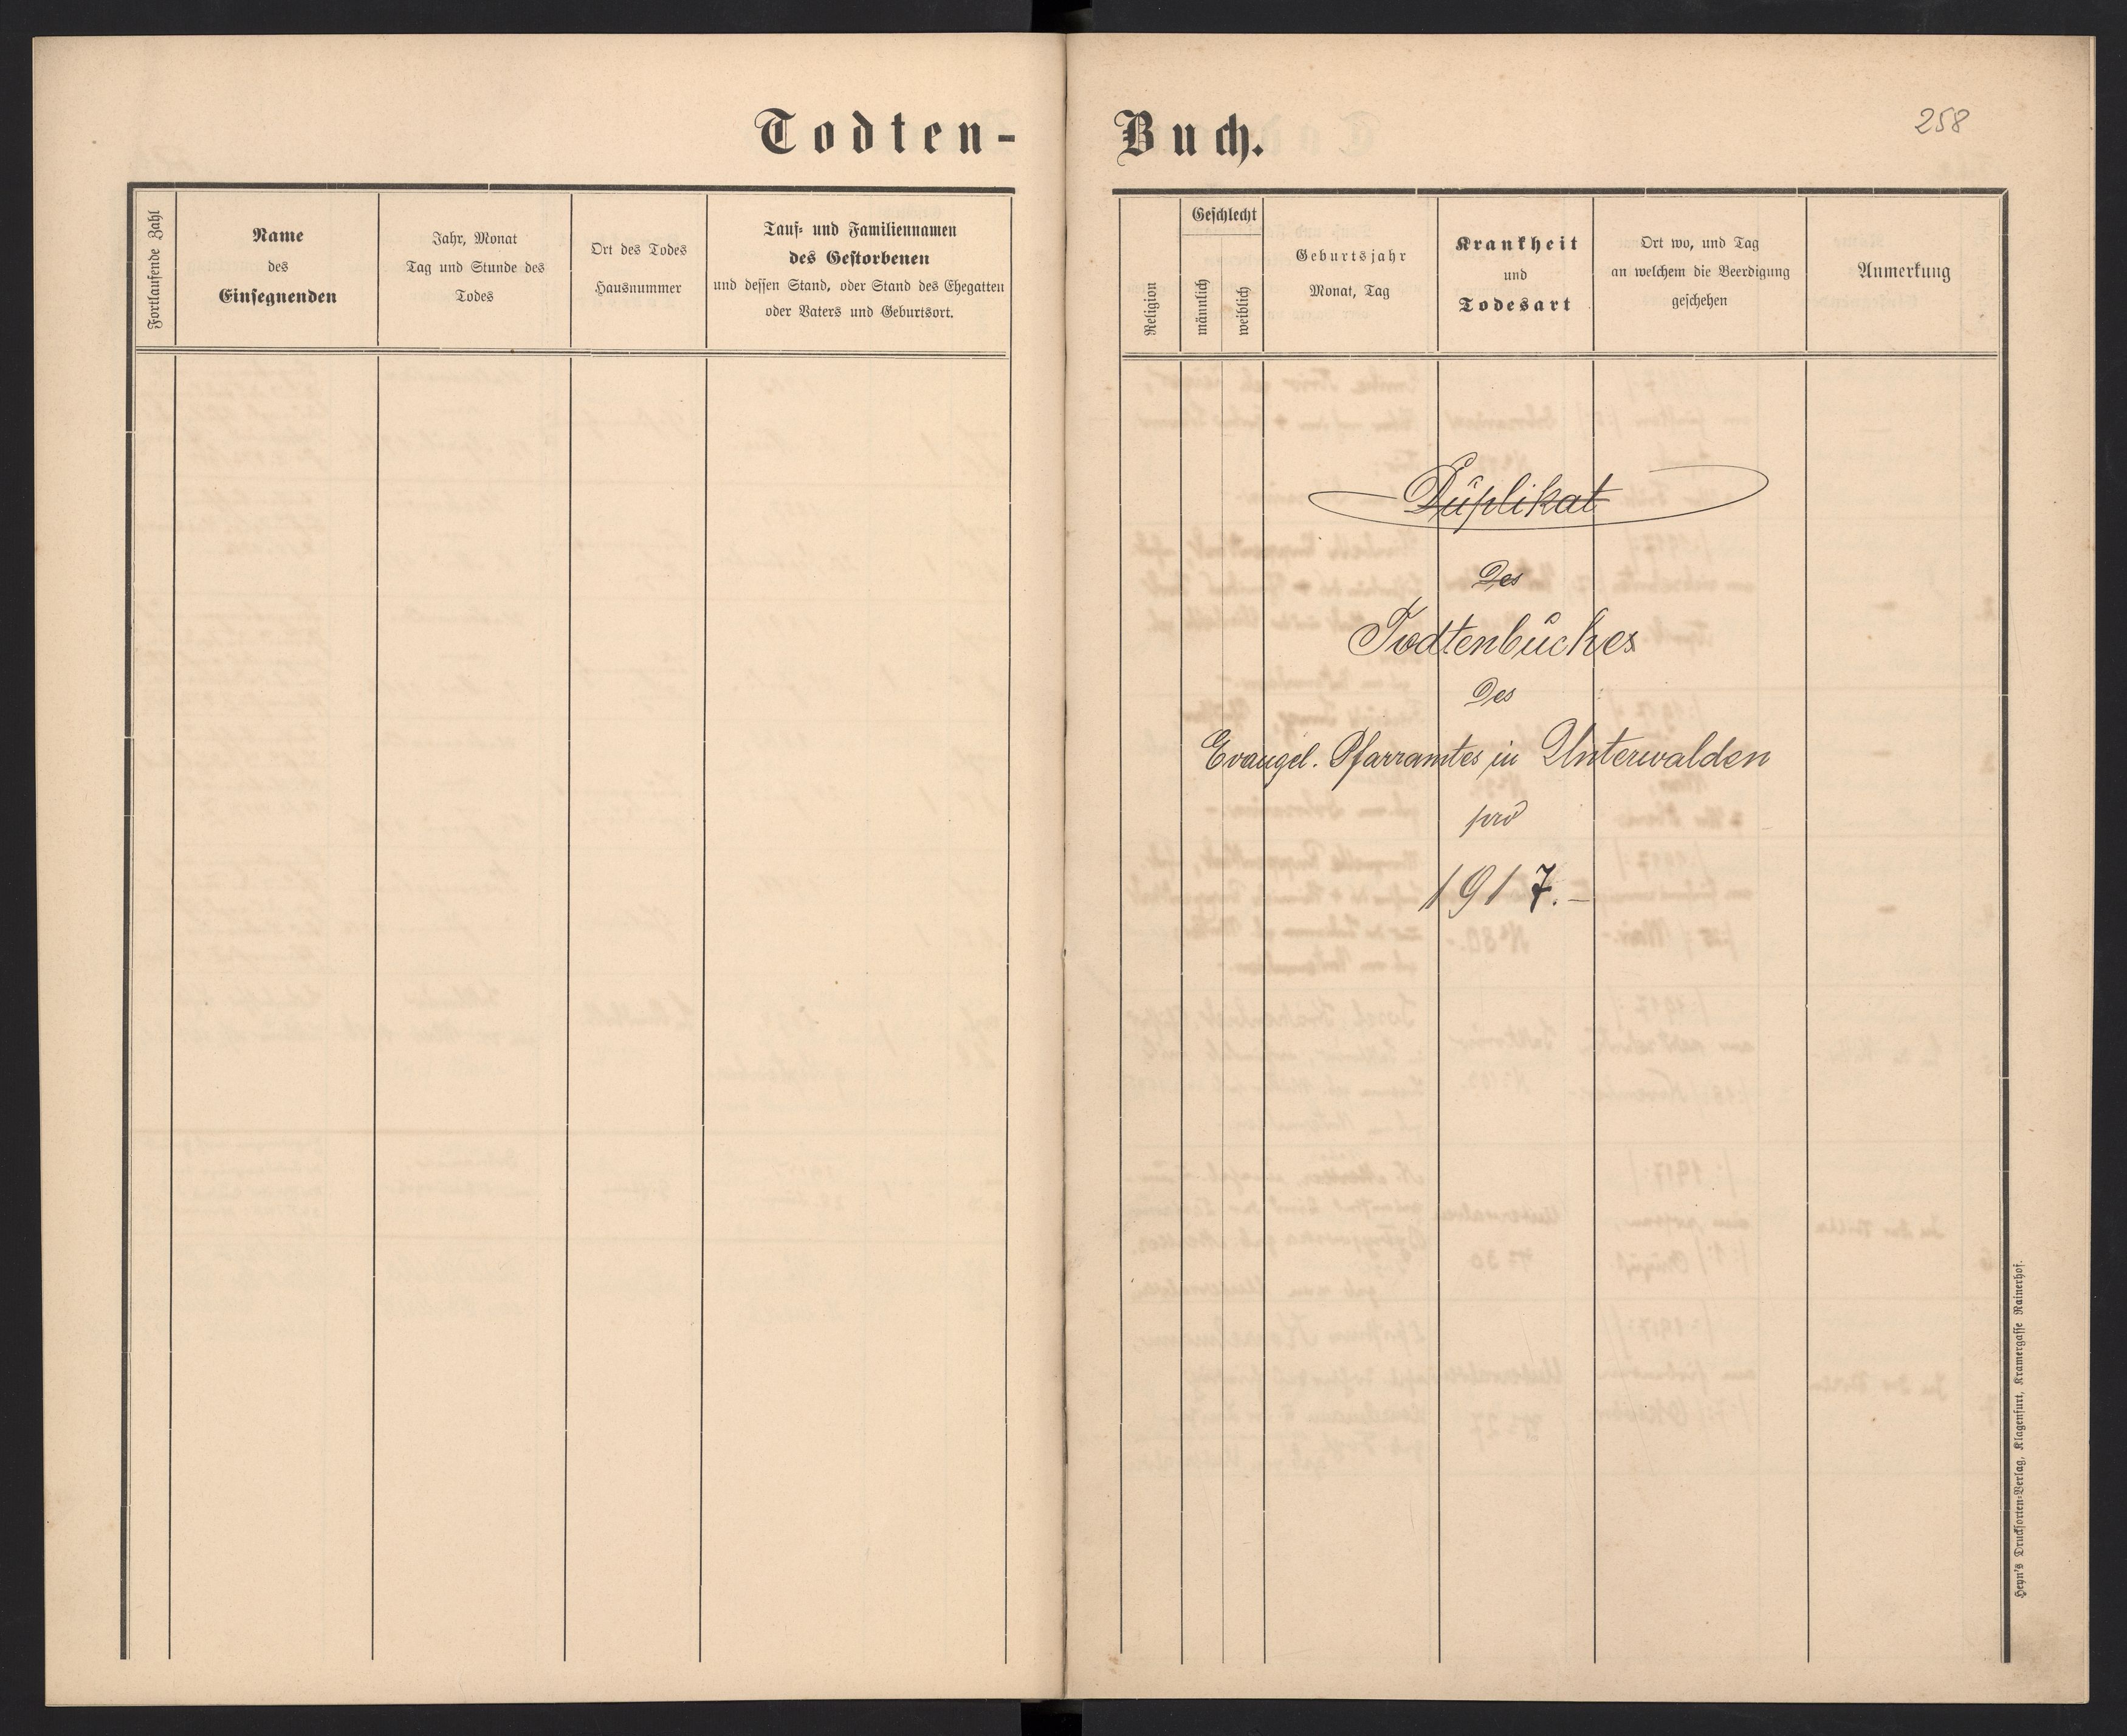 Todten-
Buch.
258
Fortlaufende Zahl
Name
des
Einsegnenden
Jahr, Monat
Tag und Stunde des
Todes
Ort des Todes
Hausnummer
Tauf- und Familiennamen
des Gestorbenen
und dessen Stand, oder Stand des Ehegatten
oder Vaters und Geburtsort.
Religion
Geschlecht
männlich
weiblich
Geburtsjahr
Monat, Tag
Krankheit
und
Todesart
Ort wo, und Tag
an welchem die Beerdigung
geschehen
Anmerkung
Duplikat
des
Todtenbuches
des
Evangel. Pfarramtes in Unterwalden
pro
1917.-
Heyn's Drucksorten-Verlag, Klagenfurt, Kramergasse Rainerhof.